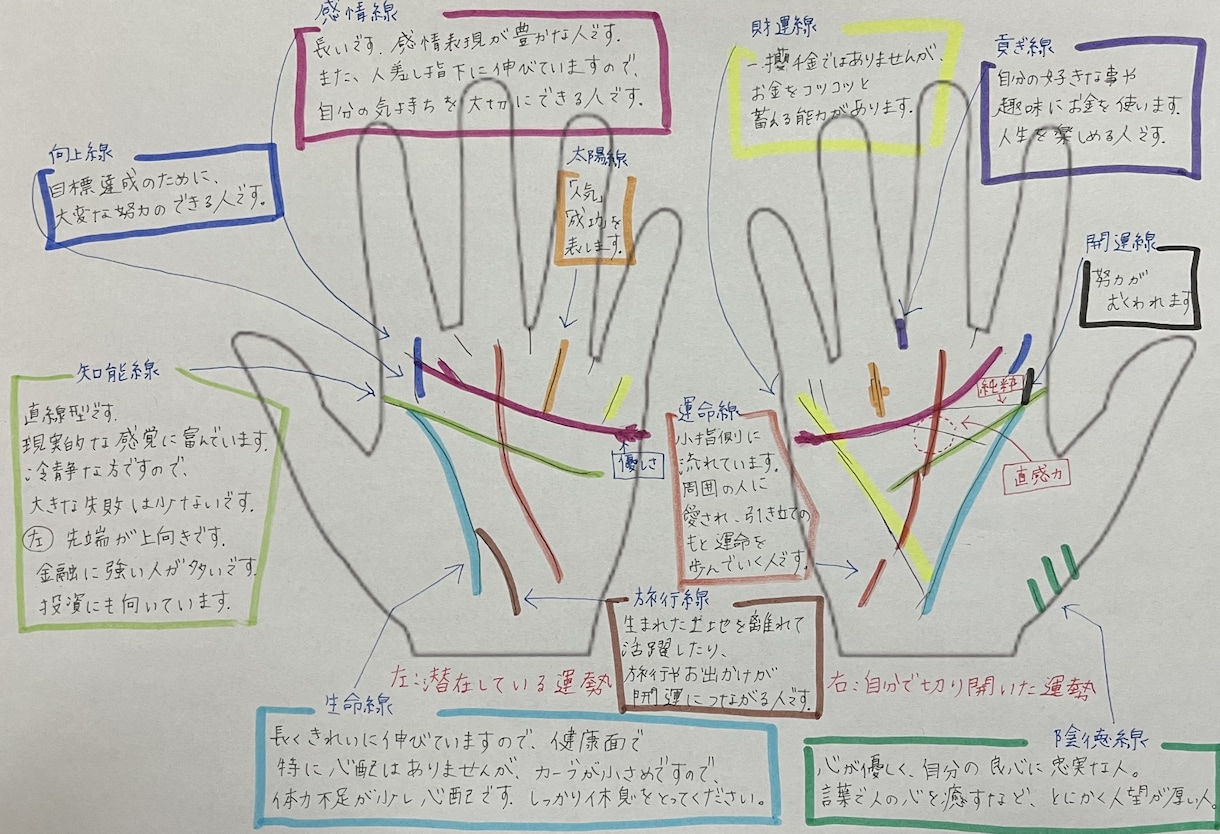 感情線
長いです。感情表現が豊かな人です。
また、人差し指下に伸びていますので、
自分の気持ちを大切にできる人です。
財運線
一攫千金ではありませんが、
お金をコツコツと
蓄える能力があります。
貢ぎ線
自分の好きな事や
趣味にお金を使います。
人生を楽しめる人です。
向上線
目標達成のために、
大変な努力のできる人です。
太陽線
「人気」
「成功」を
表します。
開運線
努力が
むくわれます
知能線
直線型です。
現実的な感覚に富んでいます。
冷静な方ですので、
大きな失敗は少ないです。
左 先端が上向きです。
金融に強い人が多いです。
投資にも向いています。
優しさ
運命線
小指側に
流れています。
周囲の人に
愛され、引き立ての
もと運命を
歩んでいく人です。
純粋
直感力
旅行線
生まれた土地を離れて
活躍したり、
旅行やお出かけが
開運につながる人です。
左:潜在している運勢
右:自分で切り開いた運勢
生命線
長くきれいに伸びていますので、健康面で
特に心配はありませんが、カーブが小さめですので、
体力不足が少し心配です。しっかり休息をとってください。
陰徳線
心が優しく、自分の良心に忠実な人。
言葉で人の心を癒すなど、とにかく人望が厚い人。